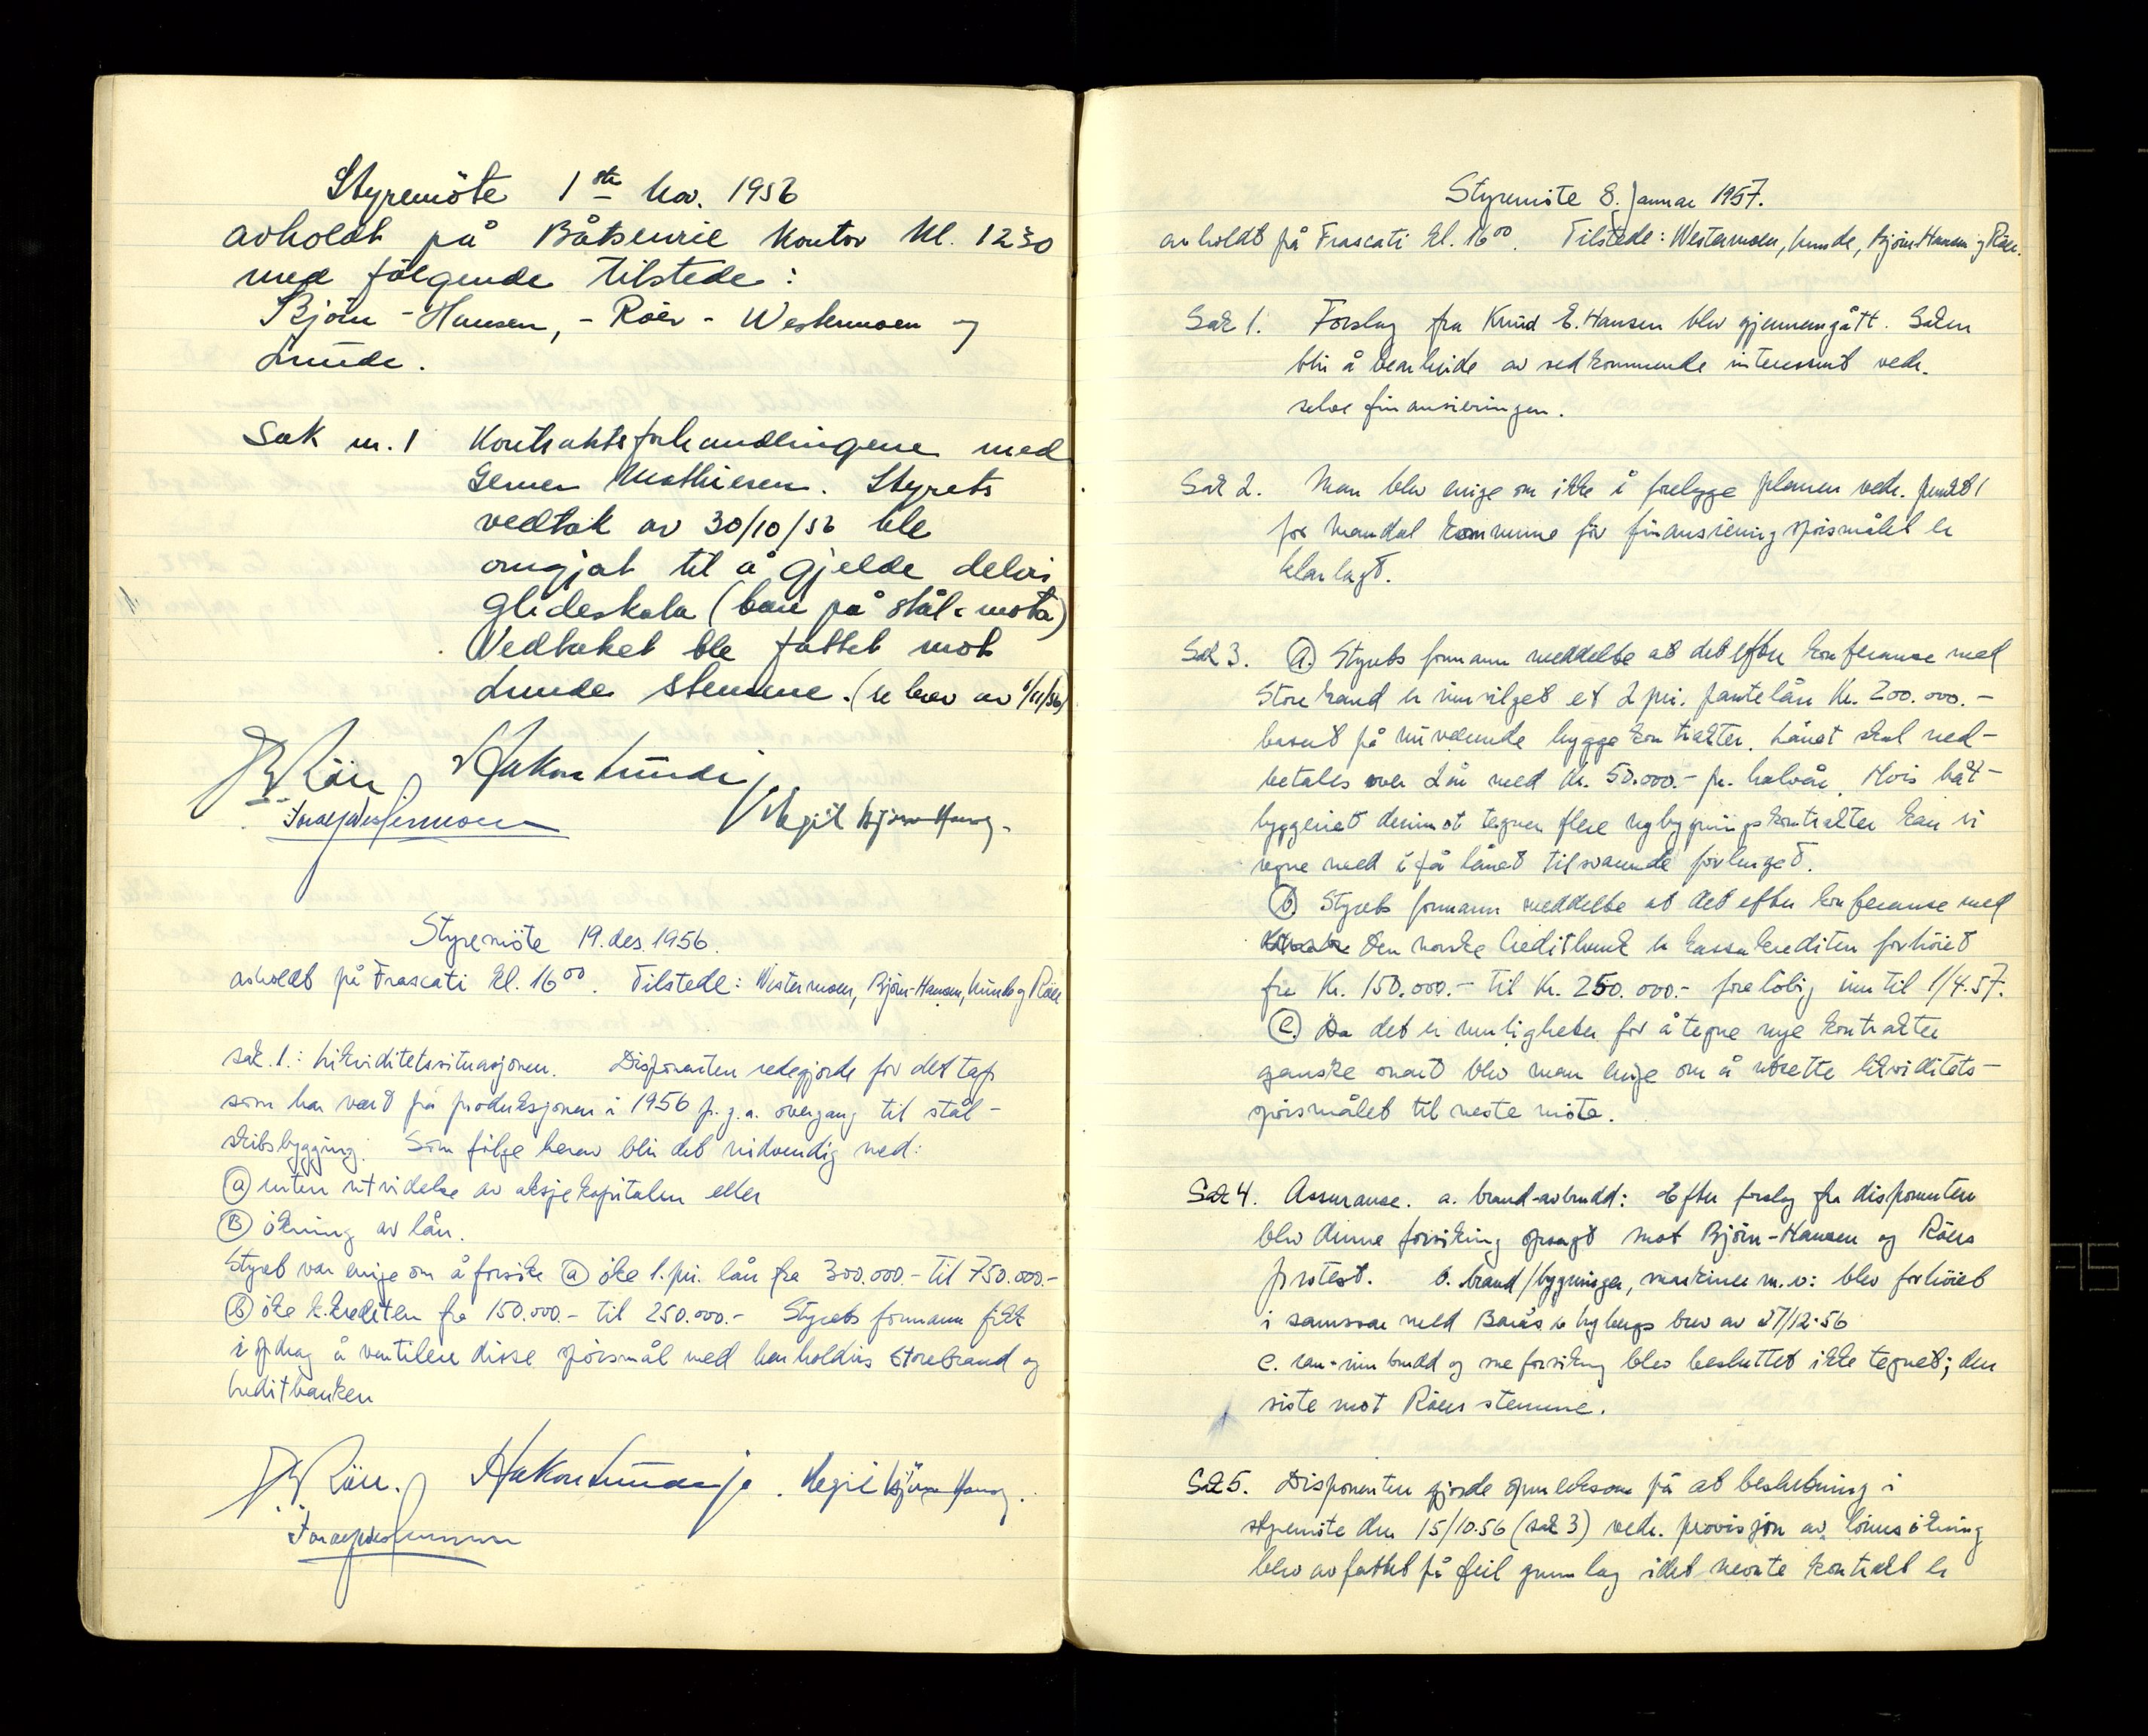 Styremöte 1ste Nov. 1956
avholdt på Båtservice kontor kl. 1230
med følgende tilstede:
Björn-Hansen, - Röer - Westermoen og
Lunde.
Sak nr. 1 Kontraktsforhandlingene med
Gerner Mathiesen. Styrets
vedtak av 30/10/56 ble
omgjort til å gjelde delvis
glideskala (bare på stål + motor)
Vedtaket ble fattet mot
Lunde stemme. (se brev av 1/11/56)
Röer Haakon Lunde jr
Westermoen Kegil Björn-Hansen.
Styremöte 19. des. 1956.
avholdt på Frascati kl. 16⁰⁰. Tilstede: Westermoen, Björn-Hansen, Lunde og Röer
sak. 1.: Likviditetssituasjonen. Disponenten redegjorde for det tap
som har vært på produksjonen i 1956 p.g.a. overgang til stål-
skibsbygging. Som fölge herav blir det nödvendig med:
(a) enten utvidelse av aksjekapitalen eller
(B) ökning av lån.
Styret var enige om å forsöke (a) öke 1. pri. lån fra 300.000.- til 750.000.-
(b) öke k.krediten fra 150.000.- til 250.000.- Styrets formann fikk
i opdrag å ventilere disse spörsmål med henholdsvis Storebrand og
Creditbanken
Röer. Haakon Lunde jr. Kegil Björn-Hansen.
Westermoen
Styremöte 8. Januar 1957.
avholdt på Frascati kl. 16⁰⁰. Tilstede: Westermoen, Lunde, Björn-Hansen og Röer.
Sak 1. Forslag fra Knud E. Hansen blev gjennemgått. Saken
blir å bearbeide av vedkommende interessent vedr.
selve finansieringen.
Sak 2. Man blev enige om ikke å forelegge planen vedr. punkt 1
for Mandal kommune för finansieringspörsmålet er
klarlagt.
Sak 3. (a.) Styrets formann meddelte at det efter konferanse med
Storebrand er innvilget et 2 pri. pantelån kr. 200.000.-
basert på nuværende byggekontrakter. Lånet skal ned-
betales over 2 år med kr. 50.000.- pr. halvår. Hvis båt-
byggeriet derimot tegner flere nybygningskontrakter kan vi
regne med å få lånet tilsvarende forlenget.
(b.) Styrets formann meddelte at det efter konferanse med
Den norske Creditbank er kassakrediten forhöiet
fra kr. 150.000.- til kr. 250.000.- forelöbig inntil 1/4.57.
(c.) Da det er muligheter for å tegne nye kontrakter
ganske snart blev man enige om å utsette likviditets-
spörsmålet til neste möte.
Sak 4. Assuranse. a. brand-avbrudd: Efter forslag fra disponenten
blev denne forsikring opsagt mot Björn-Hansen og Röers
protest. b. brand/bygninger, maskiner m.v: blev forhöiet
i samsvar med brev av 27/12-56
c. ran-innbrudd og forsikring blev besluttet ikke tegnet; den
siste mot Röers stemme.
Sak 5. Disponenten gjorde opmerksom på at beslutning i
styremöte den 15/10.56 (sak 3) vedr. provisjon av lönnsökning
blev avfattet på feil grunnlag idet nevnte kontrakt er